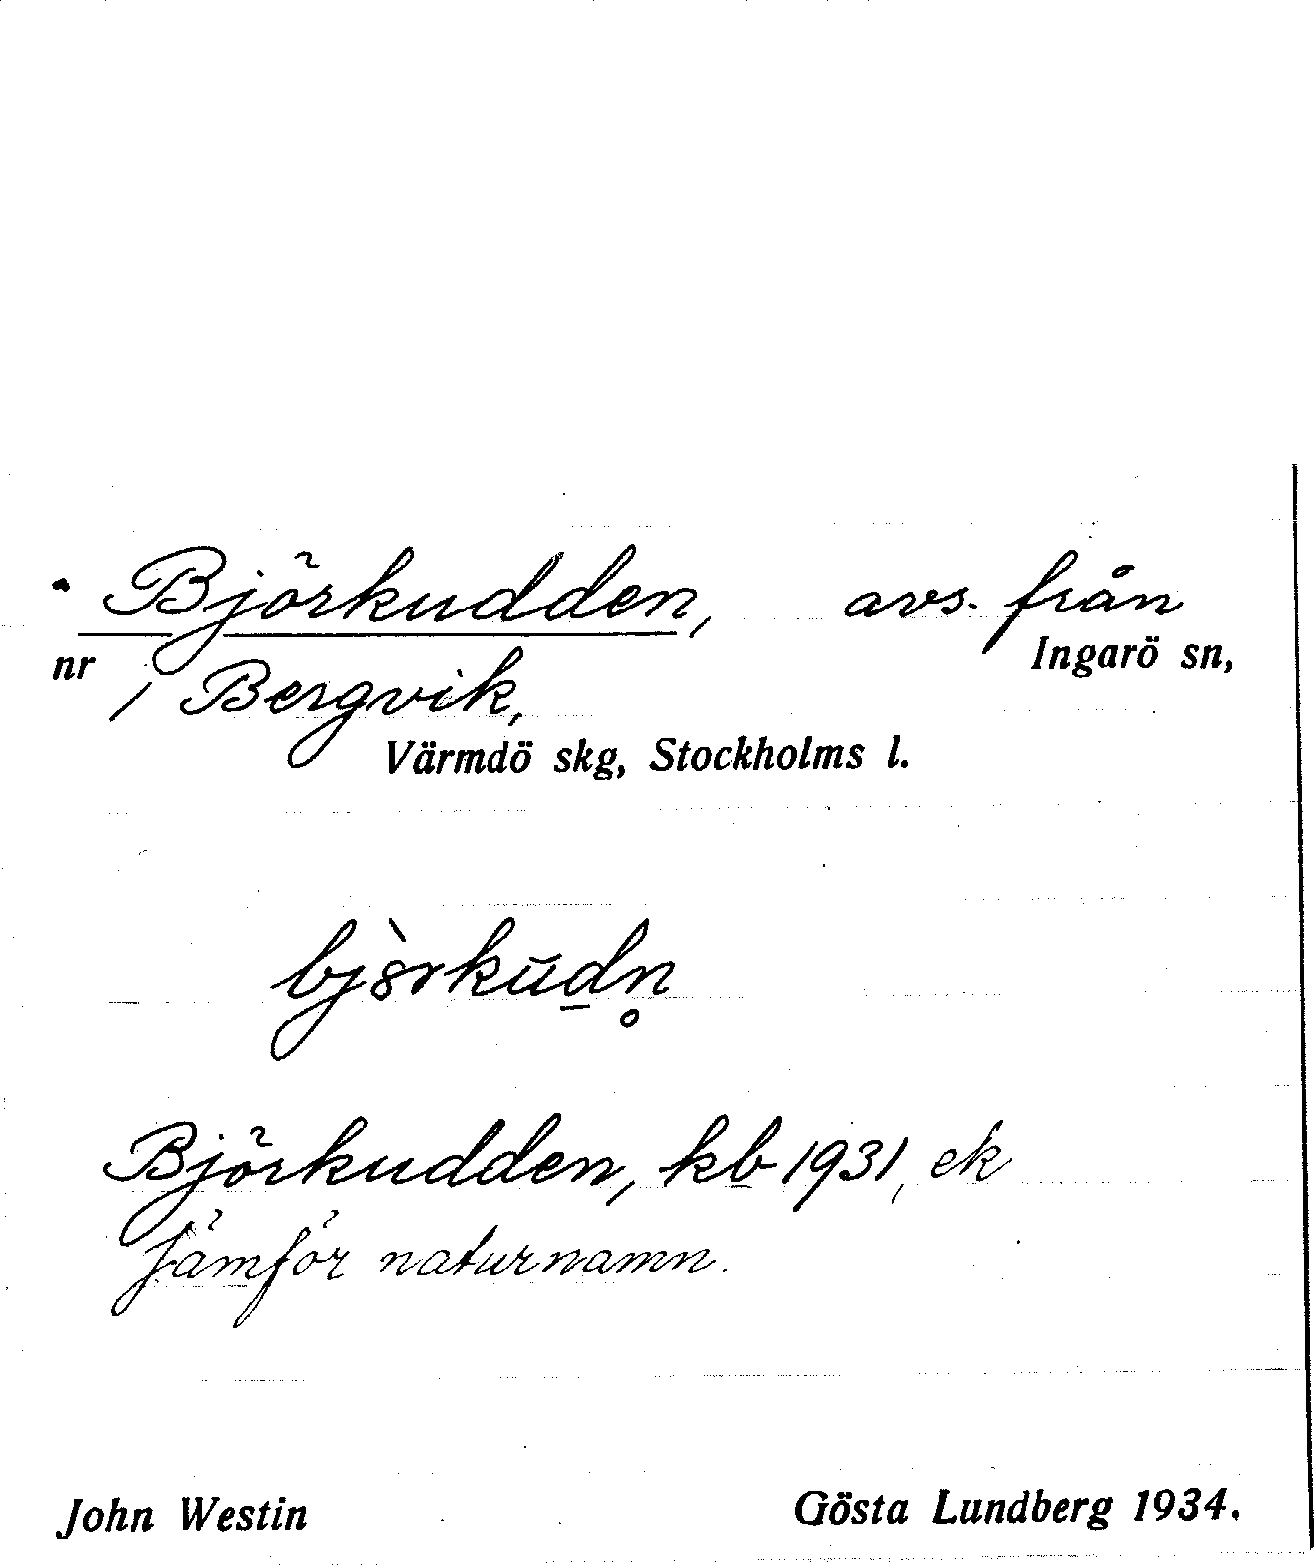 Björkudden, avs. från
nr Ingarö sn,
/ Bergvik,
Värmdö skg, Stockholms l.
bjòrkūd̲n̥
Björkudden, kb 1931, ek
Jämför naturnamn.
John Westin Gösta Lundberg 1934.